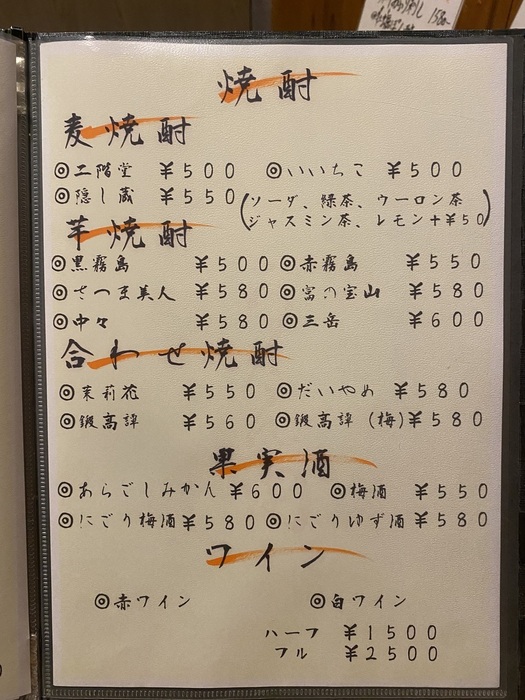 焼酎
麦焼酎
◎二階堂 ¥500 ◎いいちこ ¥500
◎隠し蔵 ¥550 (ソーダ、緑茶、ウーロン茶
ジャスミン茶、レモン+¥50)
芋焼酎
◎黒霧島 ¥500 ◎赤霧島 ¥550
◎さつま美人 ¥580 ◎富の宝山 ¥580
◎中々 ¥580 ◎三岳 ¥600
合わせ焼酎
◎茉莉花 ¥550 ◎だいやめ ¥580
◎鍛高譚 ¥560 ◎鍛高譚(梅) ¥580
果実酒
◎あらごしみかん ¥600 ◎梅酒 ¥550
◎にごり梅酒 ¥580 ◎にごりゆず酒 ¥580
ワイン
◎赤ワイン ◎白ワイン
ハーフ ¥1500
フル ¥2500